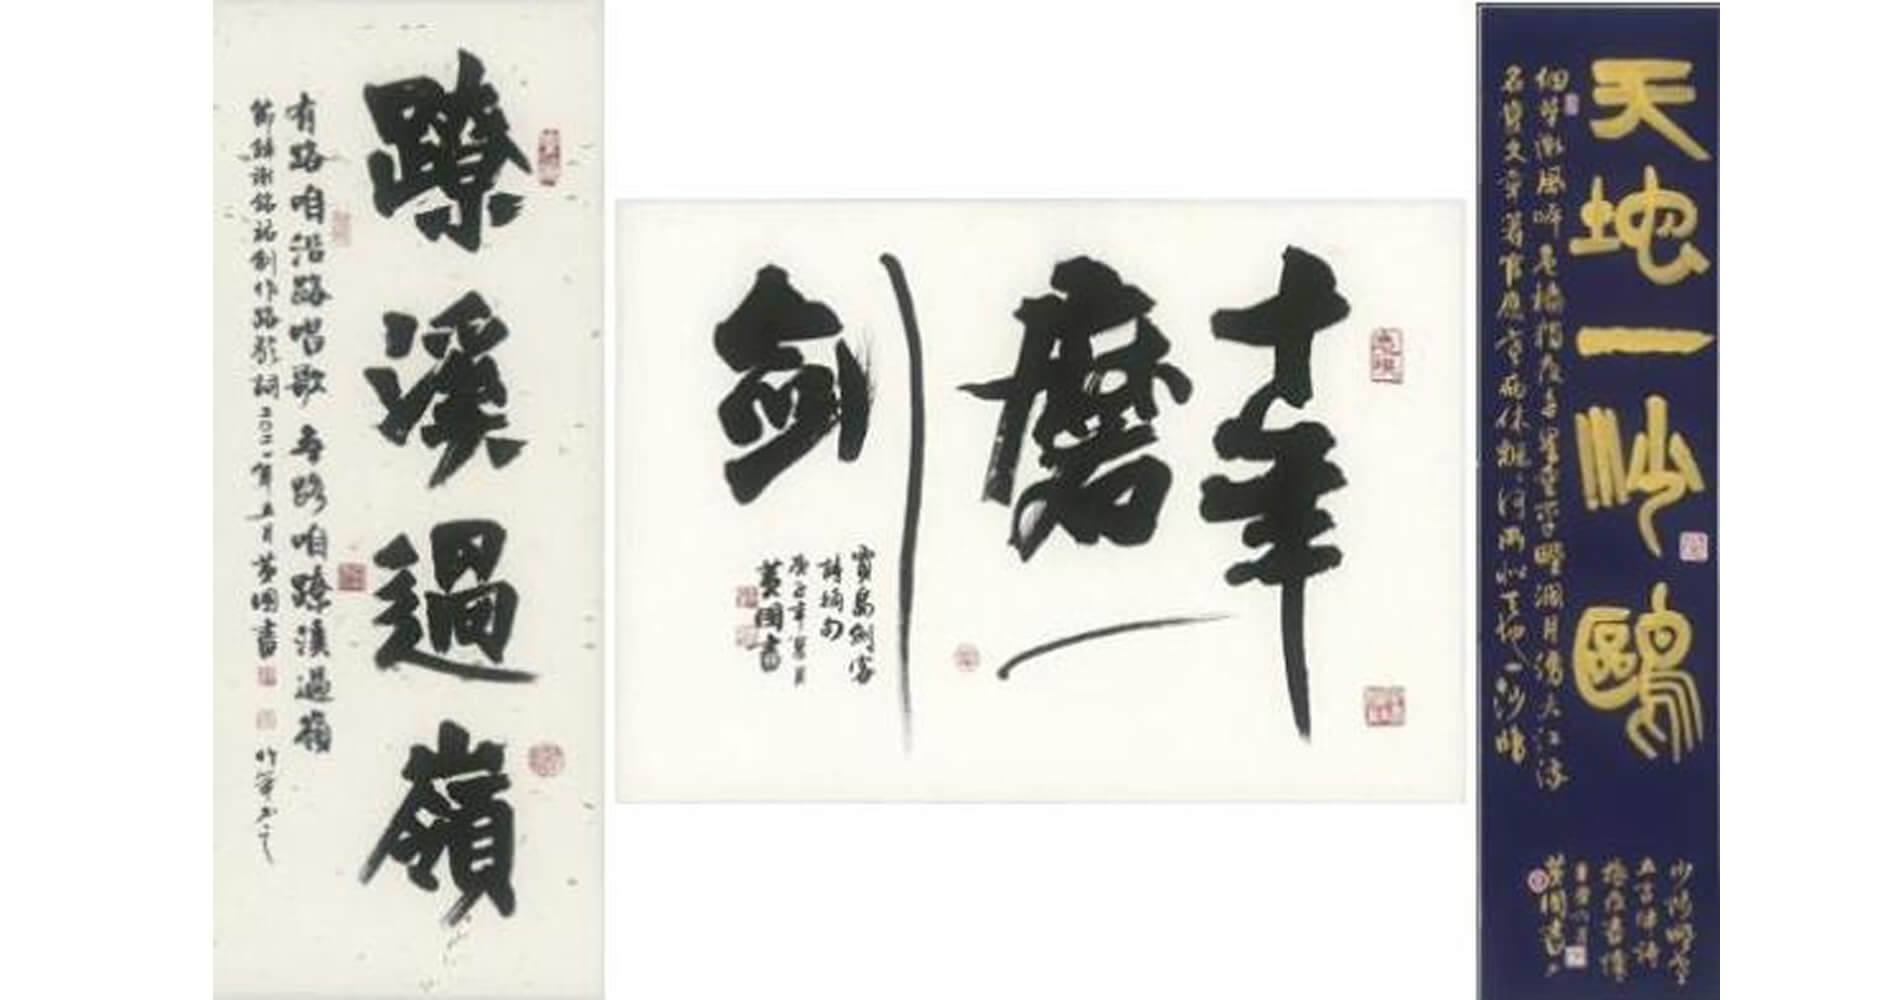 蹽溪過嶺
有路咱沿路唱歌 無路咱蹽溪過嶺
節錄謝銘祐創作路歌詞二〇二一年五月黃國書
十年
磨
劍
寶島劍客
詩摘句
黃國書
天地一沙鷗
細草微風岸危檣獨夜舟星垂平野闊月湧大江流
名豈文章著官應老病休飄飄何所似天地一沙鷗
少陵野老
五言律詩
旅夜書懷
黃國書